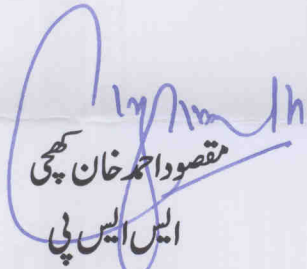 مقصود احمد خان کھچی
ایس ایس پی